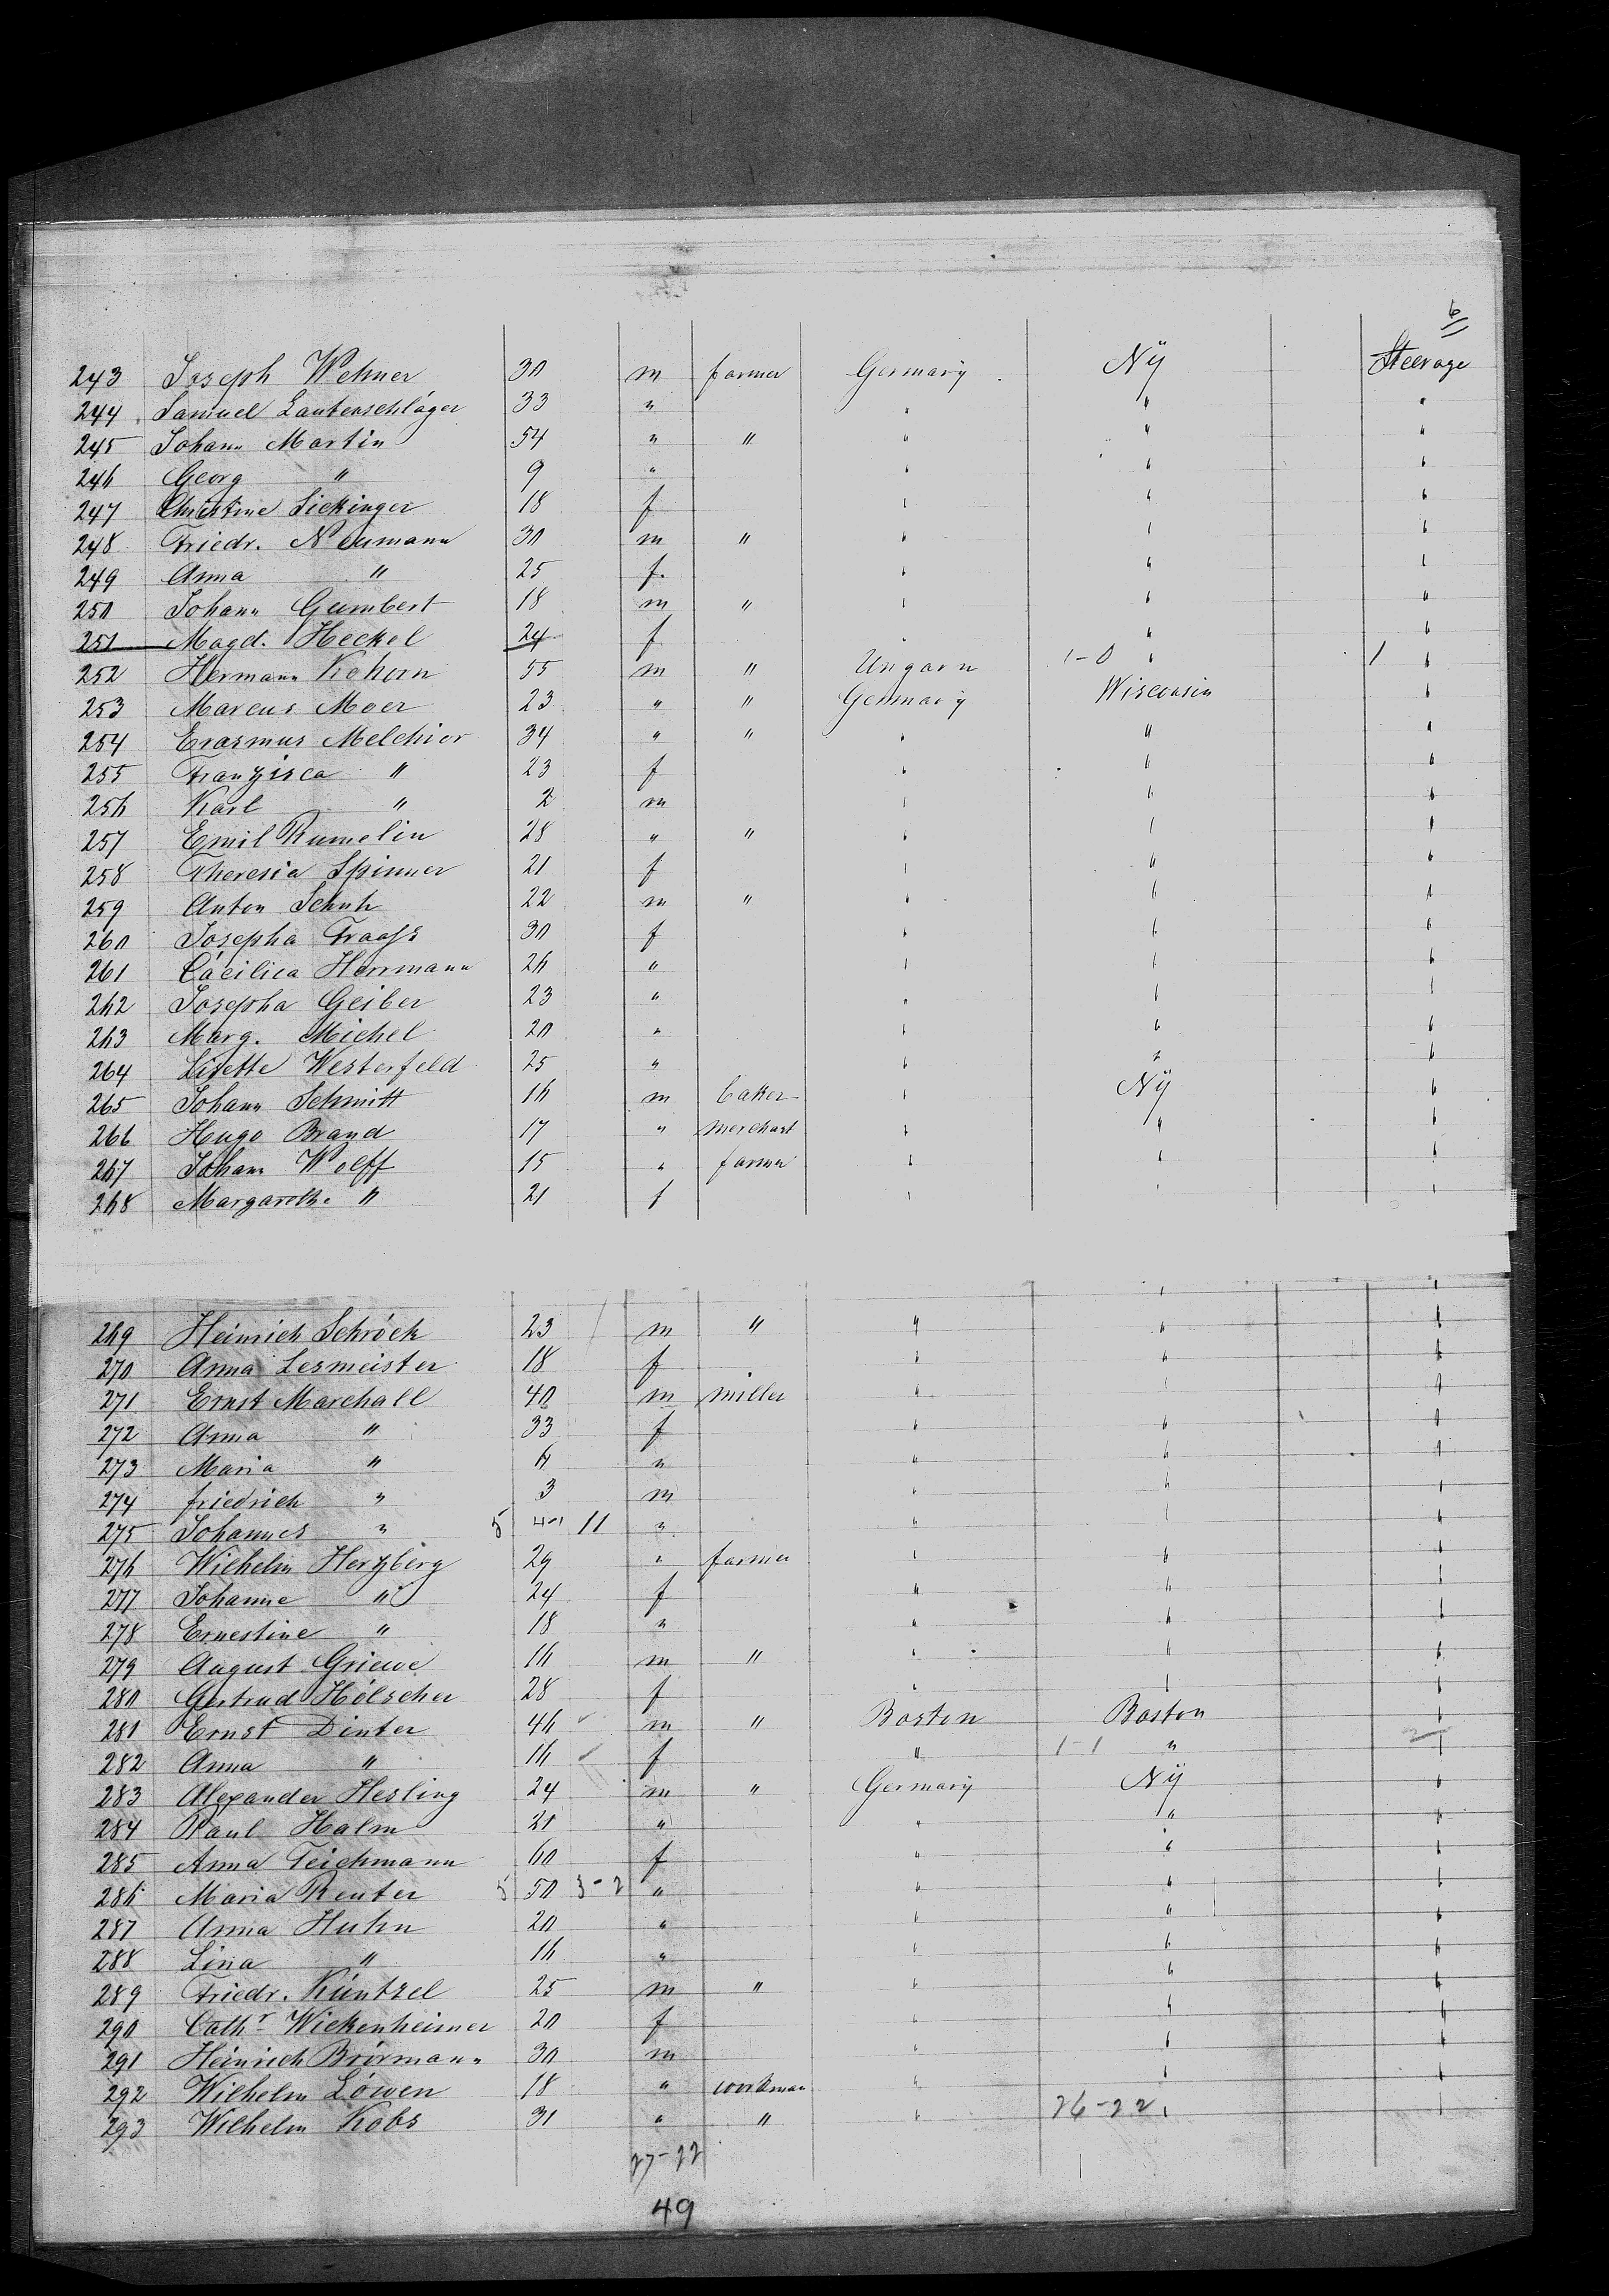 6
243 Joseph Wehner 30 m farmer Germany Ny Steerage
244 Samuel Lautenschläger 33 " " " "
245 Johann Martin 54 " " " " "
246 Georg " 9 " " " "
247 Christine Sickinger 18 f " " "
248 Friedr. Neumann 30 m " " " "
249 Anna " 25 f. " " "
250 Johann Gumbert 18 m " " " "
251 Magd. Heckel 24 f " " "
252 Hermann Kohorn 55 m " Ungarn 1-0 " 1 "
253 Marcus Moer 23 " " Germany Wisconsin "
254 Erasmus Melchior 34 " " " " "
255 Franzisca " 23 f " " "
256 Karl " 2 m " " "
257 Emil Rumelin 28 " " " " "
258 Theresia Spinner 21 f " " "
259 Anton Schuh 22 m " " " "
260 Josepha 30 f " " "
261 Cäcilica Herrmann 26 " " " "
262 Josepha Geiber 23 " " " "
263 Marg. Michel 20 " " " "
264 Lisette Westerfeld 25 " " " "
265 Johann Schmitt 16 m baker " Ny "
266 Hugo Brand 17 " merchant " " "
267 Johann Wolff 15 " farmer " " "
268 Margarethe " 21 f " " "
" "
269 Heinrich Schröck 23 m " " " "
270 Anna Lesmeister 18 f " " "
271 Ernst Marchall 40 m miller " " "
272 Anna " 33 f " " "
273 Maria " 4 " " " "
274 friedrich " 3 m " " "
275 Johannes " 5 11 " " " "
276 Wilhelm Herzberg 29 " farmer " " "
277 Johanne " 24 f " " "
278 Ernestine " 18 " " " "
279 August Griewe 16 m " " " "
280 Gertrud Hölscher 28 f " " "
281 Ernst Dinter 46 m " Boston Boston "
282 Anna " 16 f " 1-1 " 2 "
283 Alexander Hesling 24 m " Germany Ny "
284 Paul Halm 21 " " " "
285 Anna Teichmann 60 f " " "
286 Maria Reuter 5 50 3-2 " " " "
287 Anna Huhn 20 " " " "
288 Lina " 16 " " " "
289 Friedr. Küntzel 25 m " " " "
290 Cathr Wickenheimer 20 f " " "
291 Heinrich Brörmann 30 m " " "
292 Wilhelm Löwen 18 " workman " " "
293 Wilhelm Kobs 31 " " " 26-22 " "
27-22
49